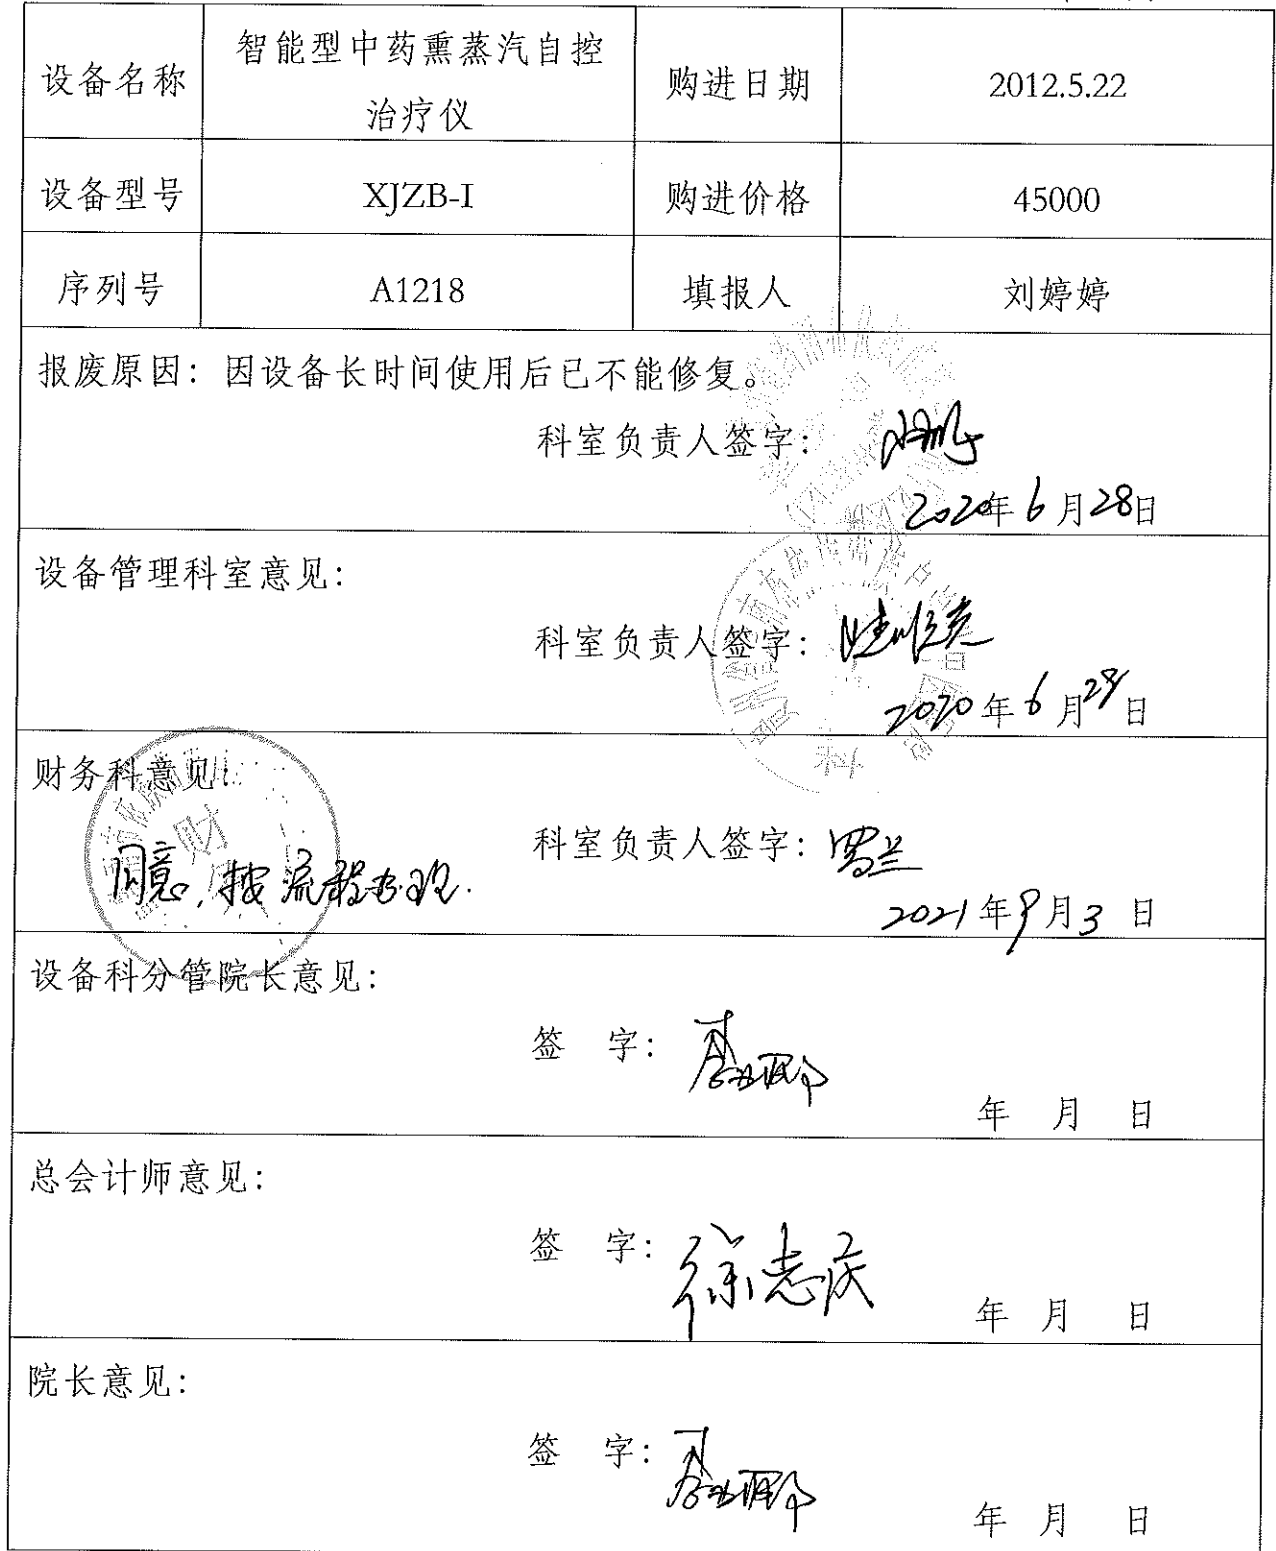 设备名称 智能型中药熏蒸汽自控治疗仪 购进日期 2012.5.22
设备型号 XJZB-I 购进价格 45000
序列号 A1218 填报人 刘婷婷
报废原因：因设备长时间使用后已不能修复。
科室负责人签字：
2020年6月28日
设备管理科室意见：
科室负责人签字：
2020年6月28日
财务科意见：
科室负责人签字：罗兰
同意，按流程办理.
2021年9月3日
设备科分管院长意见：
签 字：
年 月 日
总会计师意见：
签 字：徐志庆
年 月 日
院长意见：
签 字：
年 月 日